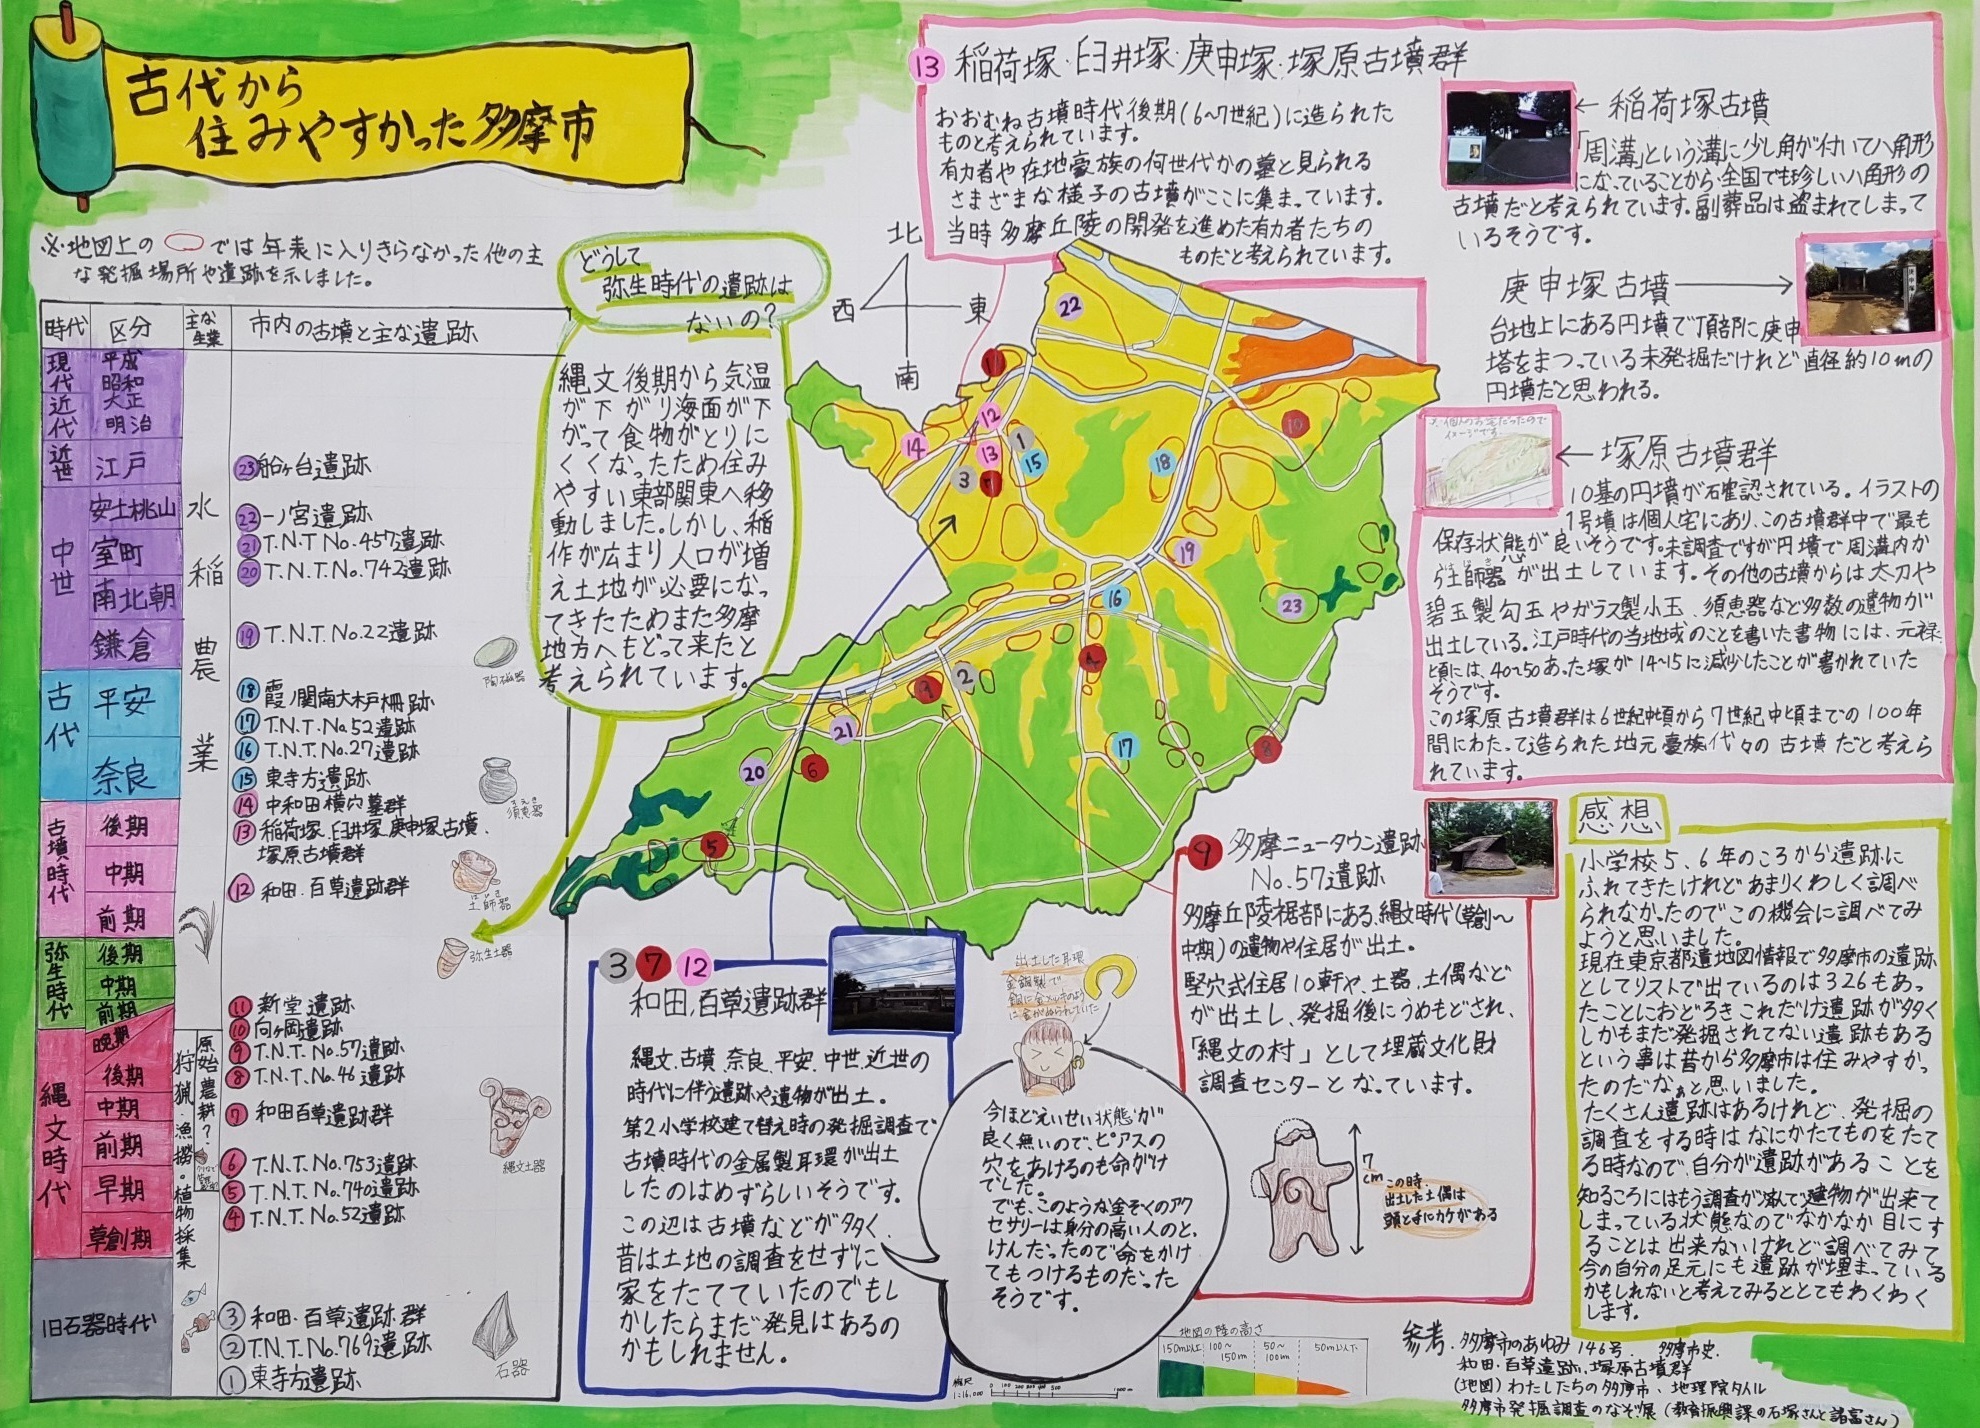 古代から
住みやすかった多摩市
※地図上の
では年表に入りきらなかった他の主
な発掘場所や遺跡を示しました。
時代
区分
主な生業
市内の古墳と主な遺跡
現代
平成
昭和
近代
大正
明治
近世
江戸
中世
安土桃山
室町
南北朝
鎌倉
古代
平安
奈良
古墳時代
後期
中期
前期
弥生時代
後期
中期
前期
縄文時代
晩期
後期
中期
前期
早期
草創期
旧石器時代
水稲農業
原始農耕?
狩猟・漁撈・植物採集
㉓船ヶ台遺跡
㉒一ノ宮遺跡
㉑T.N.T No.457遺跡
⑳T.N.T.No.742遺跡
⑲T.N.T.No.22遺跡
⑱霞ノ関南大木戸柵跡
⑰T.N.T.No.52遺跡
⑯T.N.T.No.27遺跡
⑮東寺方遺跡
⑭中和田横穴墓群
⑬稲荷塚.臼井塚.庚申塚古墳.
塚原古墳群
⑫和田.百草遺跡群
⑪新堂遺跡
⑩向ヶ岡遺跡
⑨T.N.T.No.57遺跡
⑧T.N.T.No.46遺跡
⑦和田百草遺跡群
⑥T.N.T.No.753遺跡
⑤T.N.T.No.740遺跡
④T.N.T.No.52遺跡
③和田.百草遺跡群
②T.N.T.No.769遺跡
①東寺方遺跡
陶磁器
すえき
須恵器
はじき
土師器
弥生土器
縄文土器
石器
どうして
弥生時代の遺跡は
ないの?
縄文後期から気温
が下がり海面が下
がって食物がとりに
くくなったため住み
やすい東部関東へ移
動しました。しかし、稲
作が広まり人口が増
え土地が必要になっ
てきたためまた多摩
地方へもどって来たと
考えられています。
北
西
東
南
22
12
14
1
13
15
3
7
18
10
19
16
23
2
9
4
21
17
20
6
8
5
⑬稲荷塚・臼井塚・庚申塚・塚原古墳群
おおむね古墳時代後期(6~7世紀)に造られた
ものと考えられています。
有力者や在地豪族の何世代かの墓と見られる
さまざまな様子の古墳がここに集まっています。
当時多摩丘陵の開発を進めた有力者たちの
ものだと考えられています。
←稲荷塚古墳
「周溝」という溝に少し角が付いて八角形
になっていることから全国でも珍しい八角形の
古墳だと考えられています。副葬品は盗まれてしまって
いるそうです。
庚申塚古墳→
台地上にある円墳で頂部に庚申
塔をまつっている未発掘だけれど直径約10mの
円墳だと思われる。
※個人のお宅だったので
イメージです
←塚原古墳群
10基の円墳が確認されている。イラストの
1号墳は個人宅にあり、この古墳群中で最も
保存状態が良いそうです。未調査ですが円墳で周溝内か
はじき
ら土師器が出土しています。その他の古墳からは太刀や
碧玉製勾玉やガラス製小玉、須恵器など多数の遺物が
出土している。江戸時代の当地域のことを書いた書物には、元禄
頃には、40~50あった塚が14~15に減少したことが書かれていた
そうです。
この塚原古墳群は6世紀中頃から7世紀中頃までの100年
間にわたって造られた地元豪族代々の古墳だと考えら
れています。
⑨多摩ニュータウン遺跡
No.57遺跡
多摩丘陵裾部にある縄文時代(草創~
中期)の遺物や住居が出土。
竪穴式住居10軒や、土器、土偶など
が出土し、発掘後にうめもどされ、
「縄文の村」として埋蔵文化財
調査センターとなっています。
7cm
この時
出土した土偶は
頭と手にカケがある
③⑦⑫
和田.百草遺跡群
縄文.古墳.奈良.平安.中世.近世の
時代に伴う遺跡や遺物が出土。
第2小学校建て替え時の発掘調査で
古墳時代の金属製耳環が出土
したのはめずらしいそうです。
この辺は古墳などが多く、
昔は土地の調査をせずに
家をたてていたのでもし
かしたらまだ発見はあるの
かもしれません。
出土した耳環
今ほどえいせい状態が
良く無いので、ピアスの
穴をあけるのも命がけ
でした。
でも、このような金ぞくのアク
セサリーは身分の高い人のと、
けんだったので命をかけ
てもつけるものだった
そうです。
感想
小学校5、6年のころから遺跡に
ふれてきたけれどあまりくわしく調べ
られなかったのでこの機会に調べてみ
ようと思いました。
現在東京都遺地図情報で多摩市の遺跡
としてリストで出ているのは326もあっ
たことにおどろきこれだけ遺跡が多く
しかもまだ発掘されてない遺跡もある
という事は昔から多摩市は住みやすかっ
たのだなぁと思いました。
たくさん遺跡はあるけれど、発掘の
調査をする時はなにかたてものをたて
る時なので、自分が遺跡があることを
知るころにはもう調査が済んで建物が出来て
しまっている状態なのでなかなか目にす
ることは出来ないけれど調べてみて
今の自分の足元にも遺跡が埋まっている
かもしれないと考えてみるととてもわくわく
します。
地図の陸の高さ
150m以上
100~150m
50~100m
50m以下
縮尺
1:16,000
参考.多摩市のあゆみ146号. 多摩市史.
和田.百草遺跡.塚原古墳群
(地図)わたしたちの多摩市、地理院タイル
多摩市発掘調査のなぞ展(教育振興課の石塚さんと諸富さん)